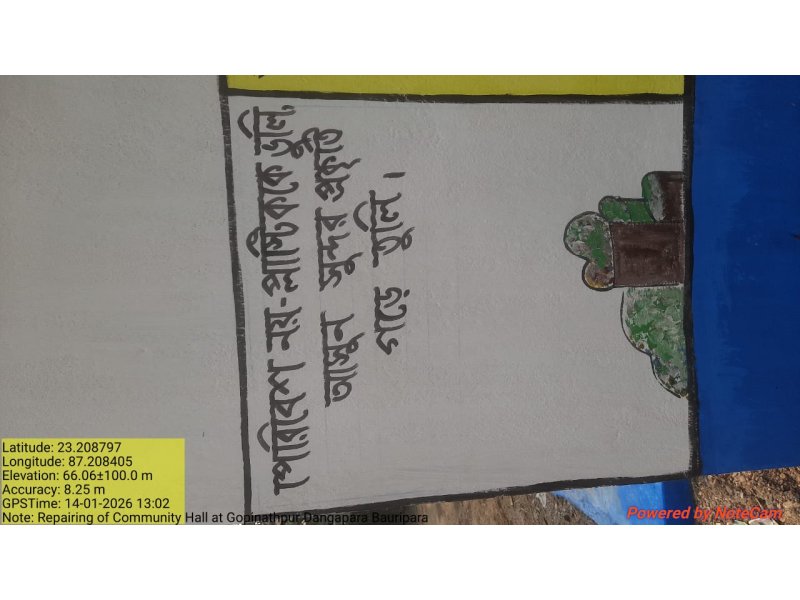 পরিবেশ নয়-প্লাস্টিককে তুলি,
আসুন সুন্দর প্রকৃতি
গড়ে তুলি।
Latitude: 23.208797
Longitude: 87.208405
Elevation: 66.06±100.0 m
Accuracy: 8.25 m
GPSTime: 14-01-2026 13:02
Note: Repairing of Community Hall at Gopinathpur Dangapara Bauripara
Powered by NoteCam